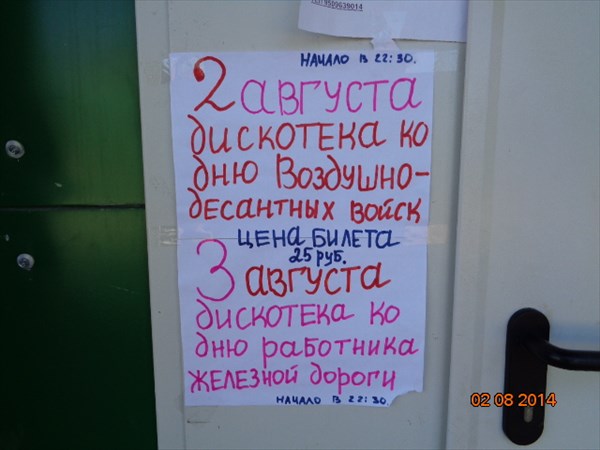 НАЧАЛО В 22:30.
2 августа
дискотека ко
дню Воздушно-
десантных войск
ЦЕНА БИЛЕТА
25 РУБ.
3 августа
дискотека ко
дню работника
железной дороги
НАЧАЛО В 22:30.
02 08 2014